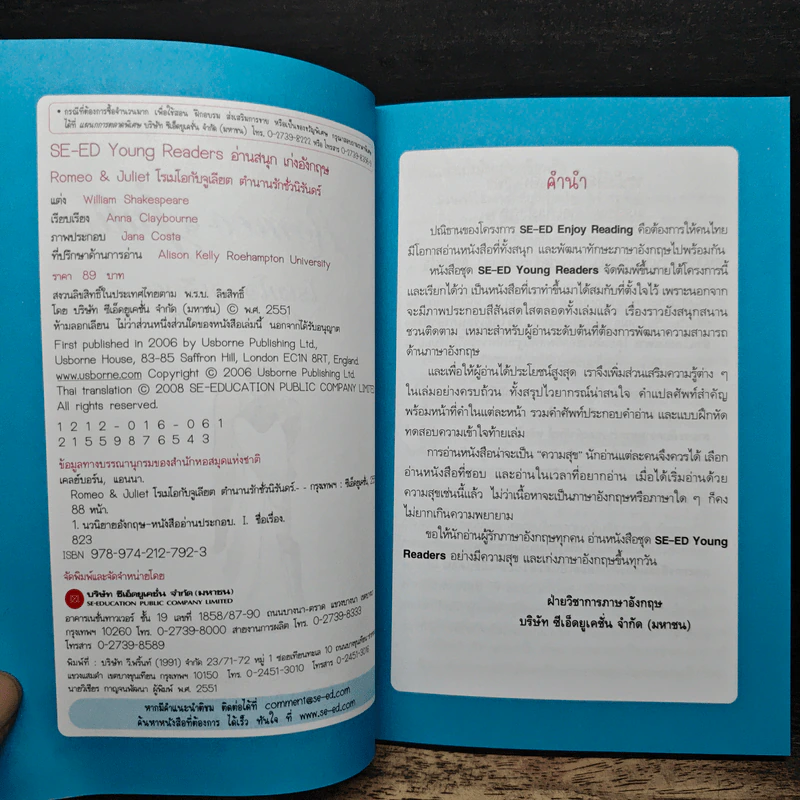 • กรณีที่ต้องการซื้อจำนวนมาก เพื่อใช้สอน ฝึกอบรม ส่งเสริมการขาย หรือเป็นของขวัญพิเศษ
ได้ที่ แผนกการตลาดพิเศษ บริษัท ซีเอ็ดยูเคชั่น จำกัด (มหาชน) โทร. 0-2739-8222 หรือ โทรสาร
SE-ED Young Readers อ่านสนุก เก่งอังกฤษ
Romeo & Juliet โรเมโอกับจูเลียต ตำนานรักชั่วนิรันดร์
แต่ง William Shakespeare
เรียบเรียง Anna Claybourne
ภาพประกอบ Jana Costa
ที่ปรึกษาด้านการอ่าน Alison Kelly Roehampton University
ราคา 89 บาท
สงวนลิขสิทธิ์ในประเทศไทยตาม พ.ร.บ. ลิขสิทธิ์
โดย บริษัท ซีเอ็ดยูเคชั่น จำกัด (มหาชน) © พ.ศ. 2551
ห้ามลอกเลียน ไม่ว่าส่วนหนึ่งส่วนใดของหนังสือเล่มนี้ นอกจากได้รับอนุญาต
First published in 2006 by Usborne Publishing Ltd.,
Usborne House, 83-85 Saffron Hill, London EC1N 8RT, England.
www.usborne.com Copyright © 2006 Usborne Publishing Ltd.
Thai translation © 2008 SE-EDUCATION PUBLIC COMPANY LIMITE
All rights reserved.
1 2 1 2 - 0 1 6 - 0 6 1
2 1 5 5 9 8 7 6 5 4 3
ข้อมูลทางบรรณานุกรมของสำนักหอสมุดแห่งชาติ
เคลย์บอร์น, แอนนา.
Romeo & Juliet โรเมโอกับจูเลียต ตำนานรักชั่วนิรันดร์.- - กรุงเทพฯ : ซีเอ็ดยูเคชั่น,
88 หน้า.
1. นวนิยายอังกฤษ-หนังสืออ่านประกอบ. I. ชื่อเรื่อง.
823
ISBN 978-974-212-792-3
จัดพิมพ์และจัดจำหน่ายโดย
บริษัท ซีเอ็ดยูเคชั่น จำกัด (มหาชน)
SE-EDUCATION PUBLIC COMPANY LIMITED
อาคารเนชั่นทาวเวอร์ ชั้น 19 เลขที่ 1858/87-90 ถนนบางนา-ตราด แขวงบางนา
กรุงเทพฯ 10260 โทร. 0-2739-8000 สายงานการผลิต โทร. 0-2739-8333
โทรสาร 0-2739-8589
พิมพ์ที่ : บริษัท วี.พริ้นท์ (1991) จำกัด 23/71-72 หมู่ 1 ซอยเทียนทะเล 10 ถนนบางขุนเทียน
แขวงแสมดำ เขตบางขุนเทียน กรุงเทพฯ 10150 โทร. 0-2451-3010 โทรสาร 0-2451-3016
นายวิเชียร กาญจนพัฒนา ผู้พิมพ์ พ.ศ. 2551
หากมีคำแนะนำติชม ติดต่อได้ที่ comment@se-ed.com
ค้นหาหนังสือที่ต้องการ ได้เร็ว ทันใจ ที่ www.se-ed.com
คำนำ
ปณิธานของโครงการ SE-ED Enjoy Reading คือต้องการให้คนไทย
มีโอกาสอ่านหนังสือที่ทั้งสนุก และพัฒนาทักษะภาษาอังกฤษไปพร้อมกัน
หนังสือชุด SE-ED Young Readers จัดพิมพ์ขึ้นภายใต้โครงการนี้
และเรียกได้ว่า เป็นหนังสือที่เราทำขึ้นมาได้สมกับที่ตั้งใจไว้ เพราะนอกจาก
จะมีภาพประกอบสีสันสดใสตลอดทั้งเล่มแล้ว เรื่องราวยังสนุกสนาน
ชวนติดตาม เหมาะสำหรับผู้อ่านระดับต้นที่ต้องการพัฒนาความสามารถ
ด้านภาษาอังกฤษ
และเพื่อให้ผู้อ่านได้ประโยชน์สูงสุด เราจึงเพิ่มส่วนเสริมความรู้ต่าง ๆ
ในเล่มอย่างครบถ้วน ทั้งสรุปไวยากรณ์น่าสนใจ คำแปลศัพท์สำคัญ
พร้อมหน้าที่คำในแต่ละหน้า รวมคำศัพท์ประกอบคำอ่าน และแบบฝึกหัด
ทดสอบความเข้าใจท้ายเล่ม
การอ่านหนังสือน่าจะเป็น “ความสุข” นักอ่านแต่ละคนจึงควรได้ เลือก
อ่านหนังสือที่ชอบ และอ่านในเวลาที่อยากอ่าน เมื่อได้เริ่มอ่านด้วย
ความสุขเช่นนี้แล้ว ไม่ว่าเนื้อหาจะเป็นภาษาอังกฤษหรือภาษาใด ๆ ก็คง
ไม่ยากเกินความพยายาม
ขอให้นักอ่านผู้รักภาษาอังกฤษทุกคน อ่านหนังสือชุด SE-ED Young
Readers อย่างมีความสุข และเก่งภาษาอังกฤษขึ้นทุกวัน
ฝ่ายวิชาการภาษาอังกฤษ
บริษัท ซีเอ็ดยูเคชั่น จำกัด (มหาชน)